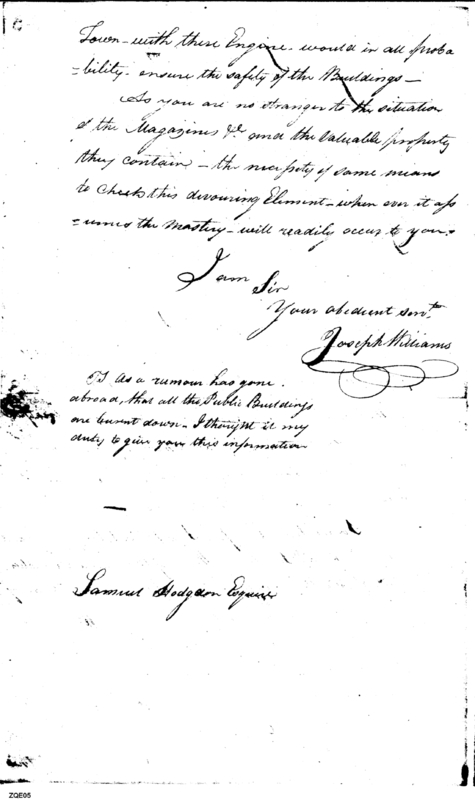 Town - with these Engine - would in all proba
= bility - ensure the safety of the Buildings -
As you are no stranger to the situation
of the Magazines &c and the valuable property
they contain - the necessity of some means
to check this devouring Element - when ever it ass
= umes the mastery - will readily occur to you -
I am
Sir
Your obedient servt.
Joseph Williams
PS As a rumour has gone
abroad, that all the Public Buildings
are burnt down - I thought it my
duty to give you this information
Samuel Hodgdon Esquire
ZQE05